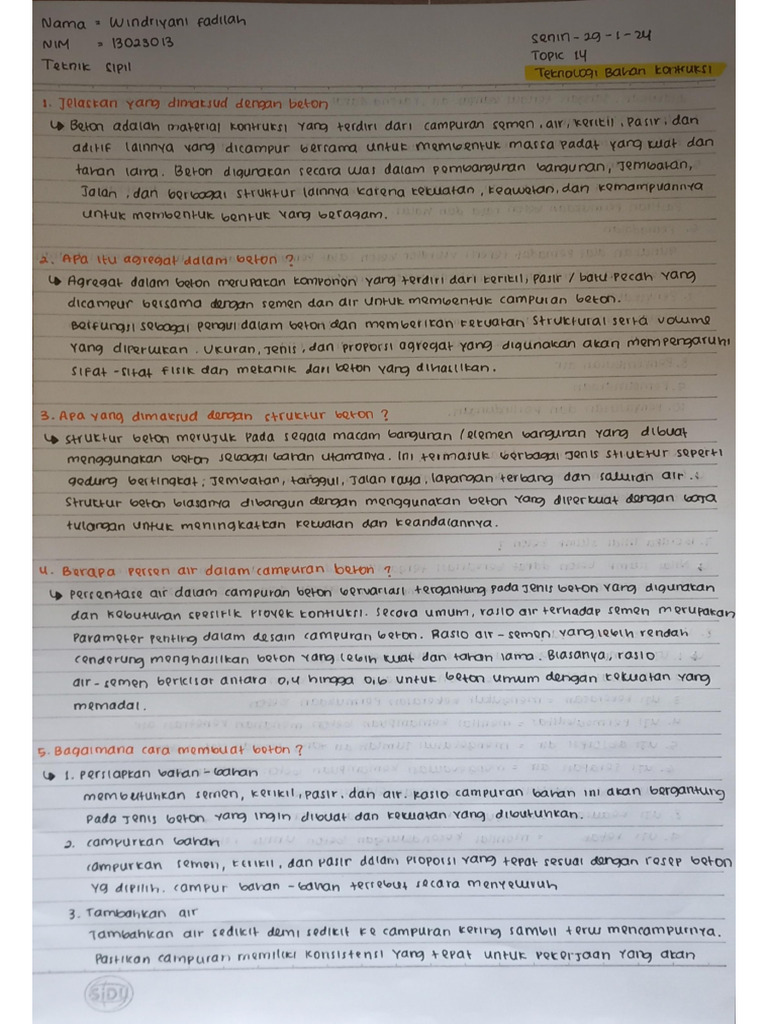 Nama = Windriyani Fadilah
NIM = 13023013
Teknik Sipil
Senin - 29 - 1 - 24
Topic 14
Teknologi Bahan Kontruksi
1. Jelaskan yang dimaksud dengan beton
↳ Beton adalah material kontruksi yang terdiri dari campuran semen, air, kerikil, pasir, dan
aditif lainnya yang dicampur bersama untuk membentuk massa padat yang kuat dan
tahan lama. Beton digunakan secara luas dalam pembangunan bangunan, jembatan,
jalan, dan berbagai struktur lainnya karena kekuatan, keawetan, dan kemampuannya
untuk membentuk bentuk yang beragam.
2. Apa itu agregat dalam beton ?
↳ Agregat dalam beton merupakan komponon yang terdiri dari kerikil, pasir / batu pecah yang
dicampur bersama dengan semen dan air untuk membentuk campuran beton.
Berfungsi sebagai pengui dalam beton dan memberikan kekuatan struktural serta volume
yang diperlukan. Ukuran, jenis, dan proporsi agregat yang digunakan akan mempengaruhi
sifat - sifat fisik dan mekanik dari beton yang dihasilkan.
3. Apa yang dimaksud dengan struktur beton ?
↳ Struktur beton merujuk pada segala macam bangunan / elemen bangunan yang dibuat
menggunakan beton sebagai bahan utamanya. Ini termasuk berbagai jenis struktur seperti
gedung bertingkat, jembatan, tanggul, jalan raya, lapangan terbang dan saluran air.
Struktur beton biasanya dibangun dengan menggunakan beton yang diperkuat dengan baja
tulangan untuk meningkatkan kekuatan dan keandalannya.
4. Berapa persen air dalam campuran beton ?
↳ Persentase air dalam campuran beton bervariasi tergantung pada jenis beton yang digunakan
dan kebutuhan spesifik proyek kontruksi. Secara umum, rasio air terhadap semen merupakan
parameter penting dalam desain campuran beton. Rasio air - semen yang lebih rendah
cenderung menghasilkan beton yang lebih kuat dan tahan lama. Biasanya, rasio
air - semen berkisar antara 0,4 hingga 0,6 untuk beton umum dengan kekuatan yang
memadai.
5. Bagaimana cara membuat beton ?
↳ 1. Persiapkan bahan - bahan
membutuhkan semen, kerikil, pasir, dan air. Rasio campuran bahan ini akan bergantung
pada jenis beton yang ingin dibuat dan kekuatan yang dibutuhkan.
2. Campurkan bahan
Campurkan semen, kerikil, dan pasir dalam proporsi yang tepat sesuai dengan resep beton
yg dipilih. Campur bahan - bahan tersebut secara menyeluruh
3. Tambahkan air
Tambahkan air sedikit demi sedikit ke campuran kering sambil terus mencampurnya.
Pastikan campuran memiliki konsistensi yang tepat untuk pekerjaan yang akan
SiDU